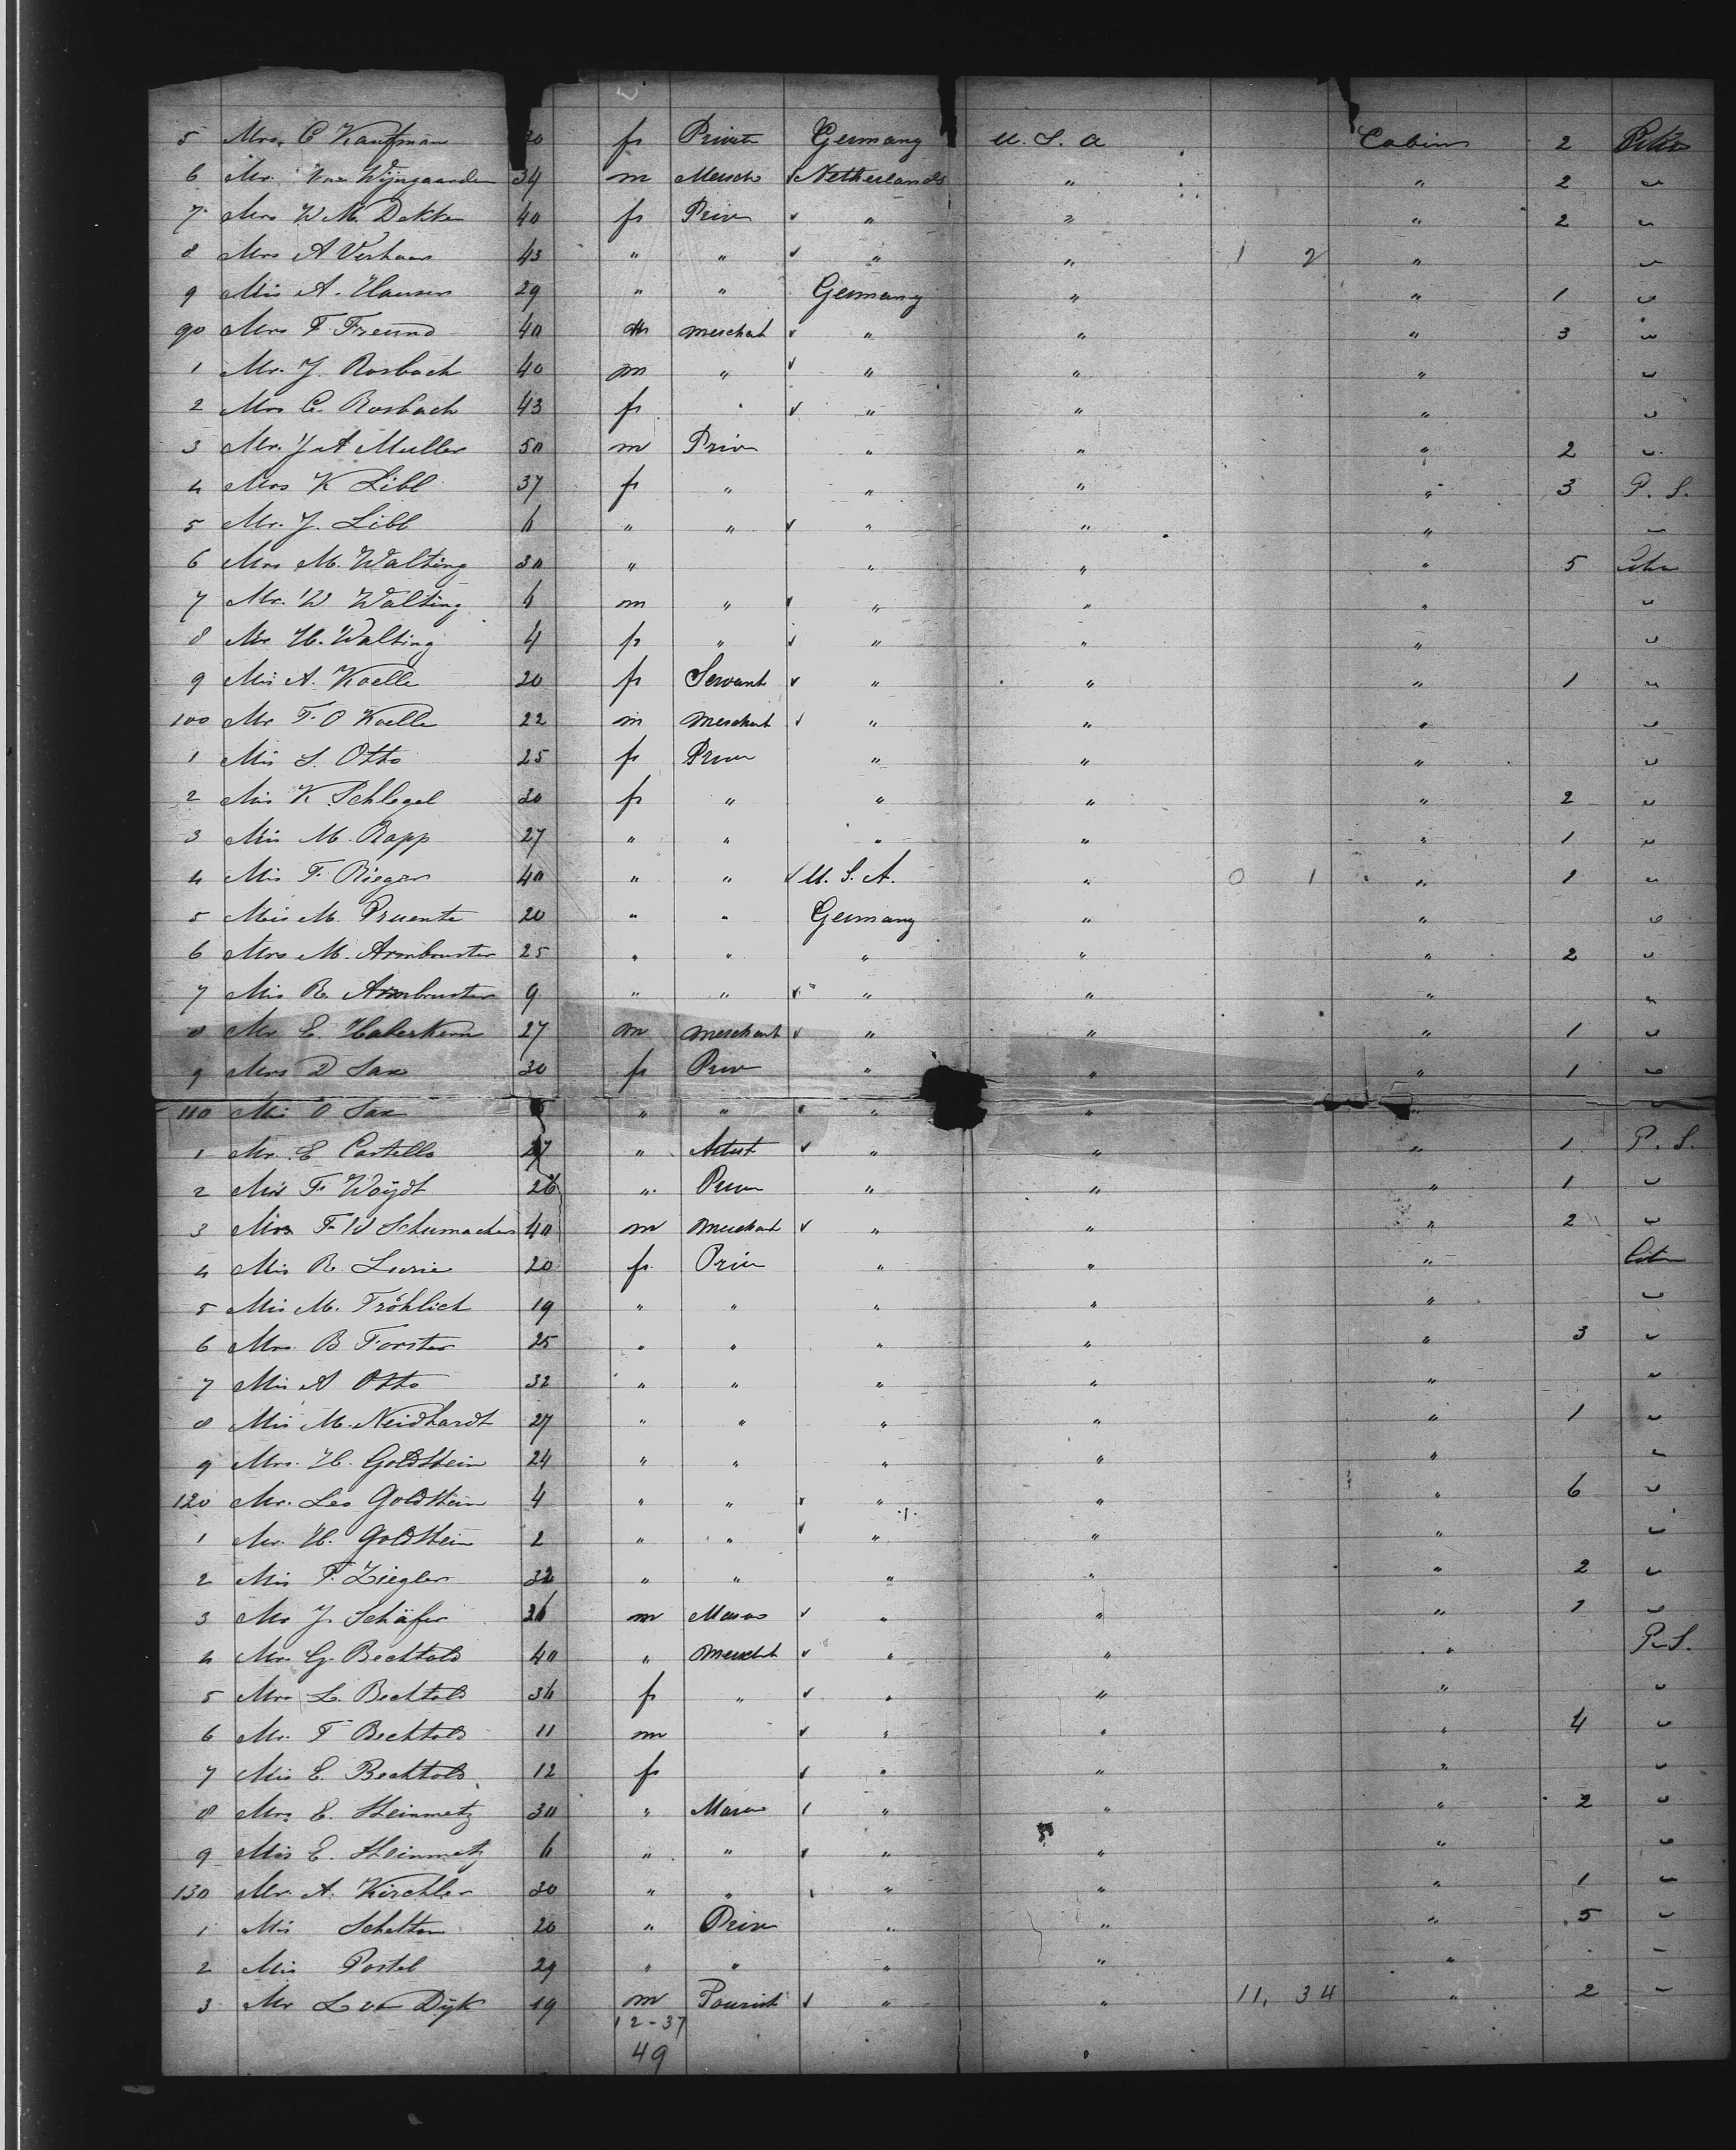 5 Mrs. C Kaufman 30 f Private Germany U. S. A Cabin 2
6 Mr. Van Wijngaarden 34 m Merch Netherlands " " 2 "
7 Mrs W M Dekker 40 f Priv " " " 2 "
8 Mrs A Verhaar 43 " " " " 1 2 " "
9 Mis A. Hansen 29 " " Germany " " 1 "
90 Mrs F Freund 40 m merchant " " " 3 "
1 Mr. J. Rosbach 40 m " " " " "
2 Mrs C. Rosbach 43 f " " " "
3 Mr. J A Muller 50 m Priv " " " 2 "
4 Mrs K Libl 37 f " " " " 3 P. S.
5 Mr. J. Libl 6 " " " " " "
6 Mrs M. Walting 30 " " " " 5
7 Mr. W Walting 6 m " " " " "
8 Mr H. Walting 4 f " " " " "
9 Mis A. Koelle 20 f Servant " " " 1 "
100 Mr F. O Koelle 22 m merchant " " " "
1 Mis S. Otto 25 f Priv " " " "
2 Mis K Schlegel 30 f " " " " 2 "
3 Mis M. Rapp 27 " " " " " 1 "
4 Mis F. Rieger 40 " " U. S. A. " 0 1 " 1 "
5 Mis M. Pruente 20 " " Germany " " "
6 Mrs M. Armbruster 25 " " " " " 2 "
7 Mis R. Armbruster 9 " " " " " "
8 Mr E. Haberkern 27 m merchant " " " 1 "
9 Mrs D Sax 30 f Priv " " " 1 "
110 Mis O Sax " " " " " "
1 Mr. E Castello 27 " Artist " " " 1 P. S.
2 Mis F. Woydt 26 " Priv " " " 1 "
3 Mrs F W Schumacher 40 m merchant " " " 2 "
4 Mis R. Lurie 20 f Priv " " "
5 Mis M. Fröhlich 19 " " " " " "
6 Mrs. B Forster 25 " " " " " 3 "
7 Mis A Otto 32 " " " " " "
8 Mis M. Neidhardt 27 " " " " " 1 "
9 Mrs. H. Goldstein 24 " " " " " "
120 Mr. Leo Goldstein 4 " " " " " 6 "
1 Mr. H. Goldstein 2 " " " " " "
2 Mis F. Ziegler 32 " " " " " 2 "
3 Mr J. Schäfer 26 m " " " 1 "
4 Mr. G. Bechtold 40 " mercht " " " P. S.
5 Mrs L. Bechtold 36 f " " " " "
6 Mr. F Bechtold 11 m " " " 4 "
7 Mis E. Bechtold 12 f " " " "
8 Mrs E. Steinmetz 30 " " " " 2 "
9 Mis E. Steinmetz 6 " " " " " "
130 Mr. A. Kirchler 30 " " " " " 1 "
1 Mis Schelter 20 " Priv " " " 5 "
2 Mis Postel 29 " " " " " "
3 Mr L van Dijk 19 m Tourist " " 11, 34 " 2 "
12-37
49